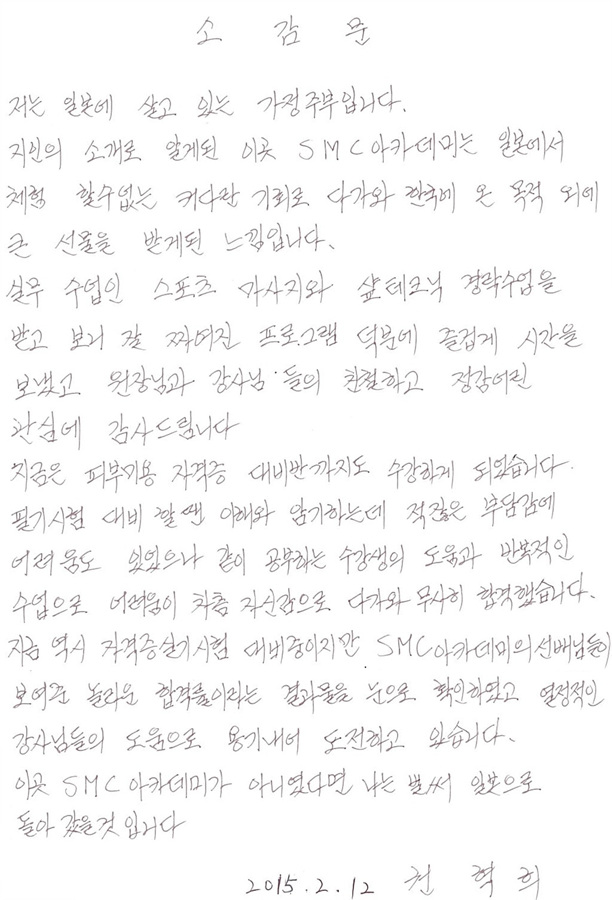 소 감 문
저는 일본에 살고 있는 가정주부입니다.
지인의 소개로 알게된 이곳 SMC아카데미는 일본에서
체험 할수없는 커다란 기회로 다가와 한국에 온 목적 외에
큰 선물을 받게된 느낌입니다.
실무 수업인 스포츠 마사지와 샾테크닉 경락수업을
받고 보니 잘 짜여진 프로그램 덕분에 즐겁게 시간을
보냈고 원장님과 강사님들의 친절하고 정감어린
관심에 감사드립니다
지금은 피부미용 자격증 대비반까지도 수강하게 되었습니다.
필기시험 대비 할땐 이해와 암기하는데 적잖은 부담감에
어려움도 있었으나 같이 공부하는 수강생의 도움과 반복적인
수업으로 어려움이 차츰 자신감으로 다가와 무사히 합격했습니다.
지금 역시 자격증실기시험 대비중이지만 SMC아카데미의선배님들이
보여준 놀라운 합격률이라는 결과물을 눈으로 확인하였고 열정적인
강사님들의 도움으로 용기내어 도전하고 있습니다.
이곳 SMC아카데미가 아니였다면 나는 벌써 일본으로
돌아 갔을것 입니다
2015.2.12 권 혁 희